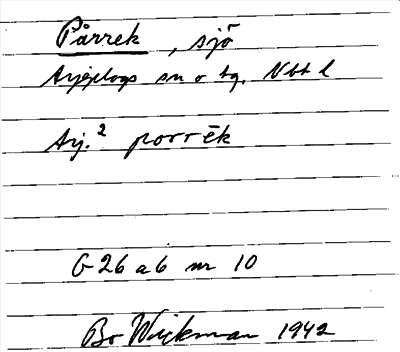 Pärrek, sjö
Arjeplogs sn o tg. Nbt l
Arj.² porrēk
G 26 a b nr 10
Bo Wickman 1942